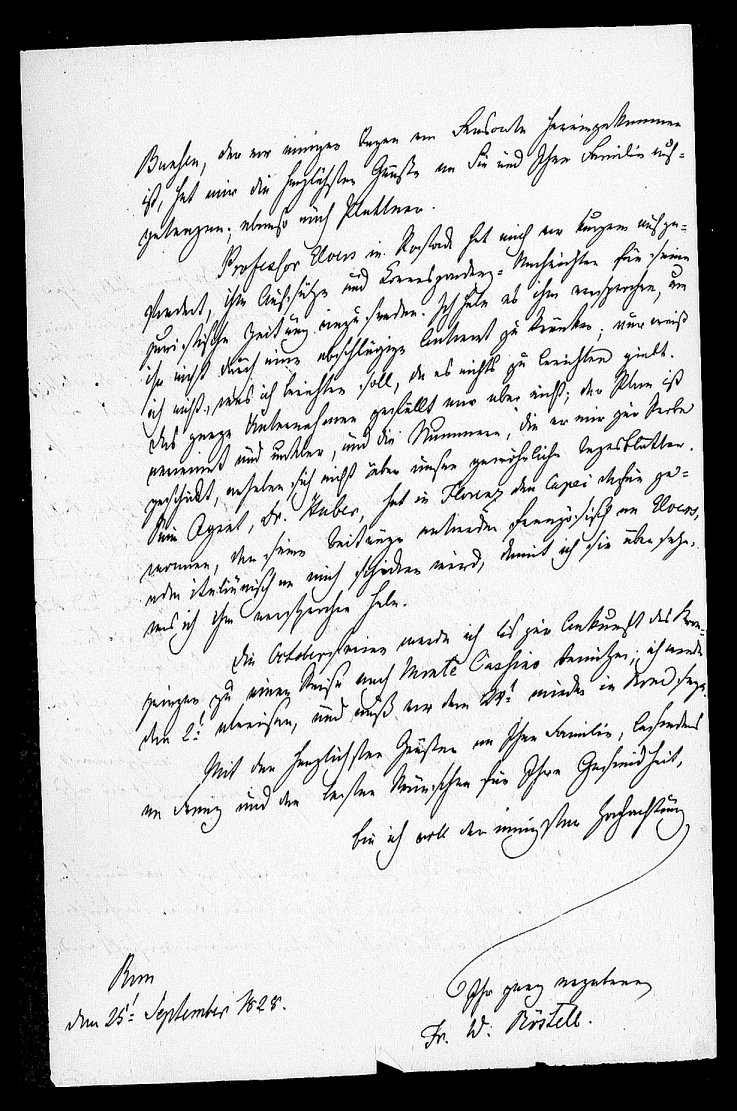 Bunsen, der vor einigen Tagen von Frascati hereingekommen
ist, hat mir die herzlichsten Grüße an Sie und Ihre Familie auf-
getragen; ebenso auch Plattner.
Professor Elvers in Rostock hat mich vor kurzem aufge-
fordert, ihm Aufsätze und Correspondenz-Nachrichten für seine
juristische Zeitung einzusenden. Ich habe es ihm versprochen, um
ihn nicht durch eine abschlägige Antwort zu kränken; nur weiß
ich nicht, was ich berichten soll, da es nichts zu berichten giebt.
Das ganze Unternehmen gefällt mir aber nicht; der Plan ist
und die Nummern, die er mir zur Probe
geschickt, erheben sich nicht über unsere gewöhnliche Tagesblätter.
Sein Agent, Dr. Huber, hat in Florenz den Capei dafür ge-
wonnen, der seine Beiträge entweder französisch an Elvers,
oder italiänisch an mich schicken wird, damit ich sie übersetze,
was ich ihm versprochen habe.
Die Octoberferien werde ich bis zur Ankunft des Kron-
prinzen zu einer Reise nach Monte Cassino benutzen; ich werde
den 2t. abreisen, und muß vor dem 24t. wieder in Rom seyn.
Mit den herzlichsten Grüßen an Ihre Familie, besonders
an Franz und den besten Wünschen für Ihre Gesundheit,
bin ich voll der innigsten Hochachtung
Ihr ganz ergebener
Fr. W. Röstell.
Rom
den 25t. September 1828.